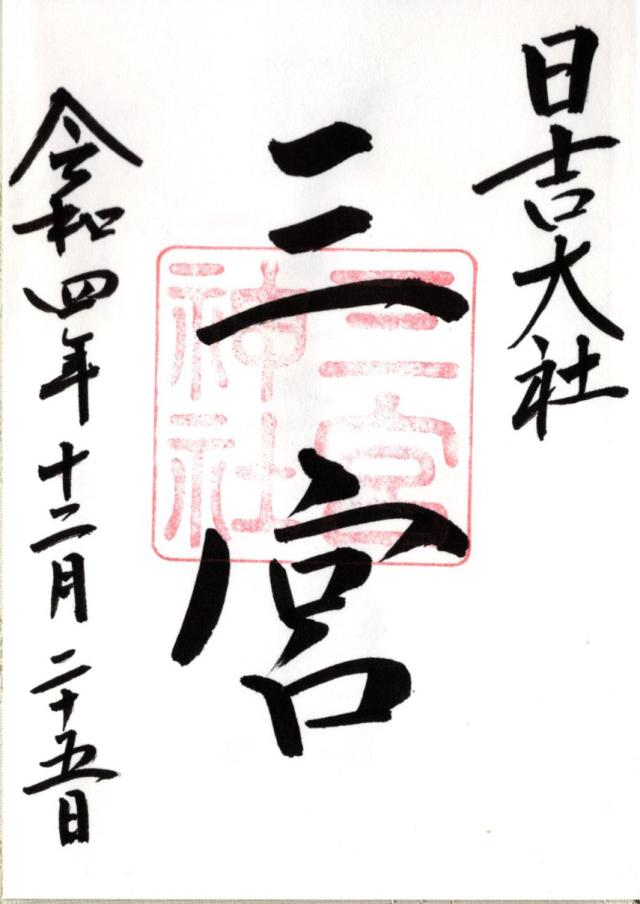 日吉大社
三宮
三宮
神社
令和四年十二月二十五日